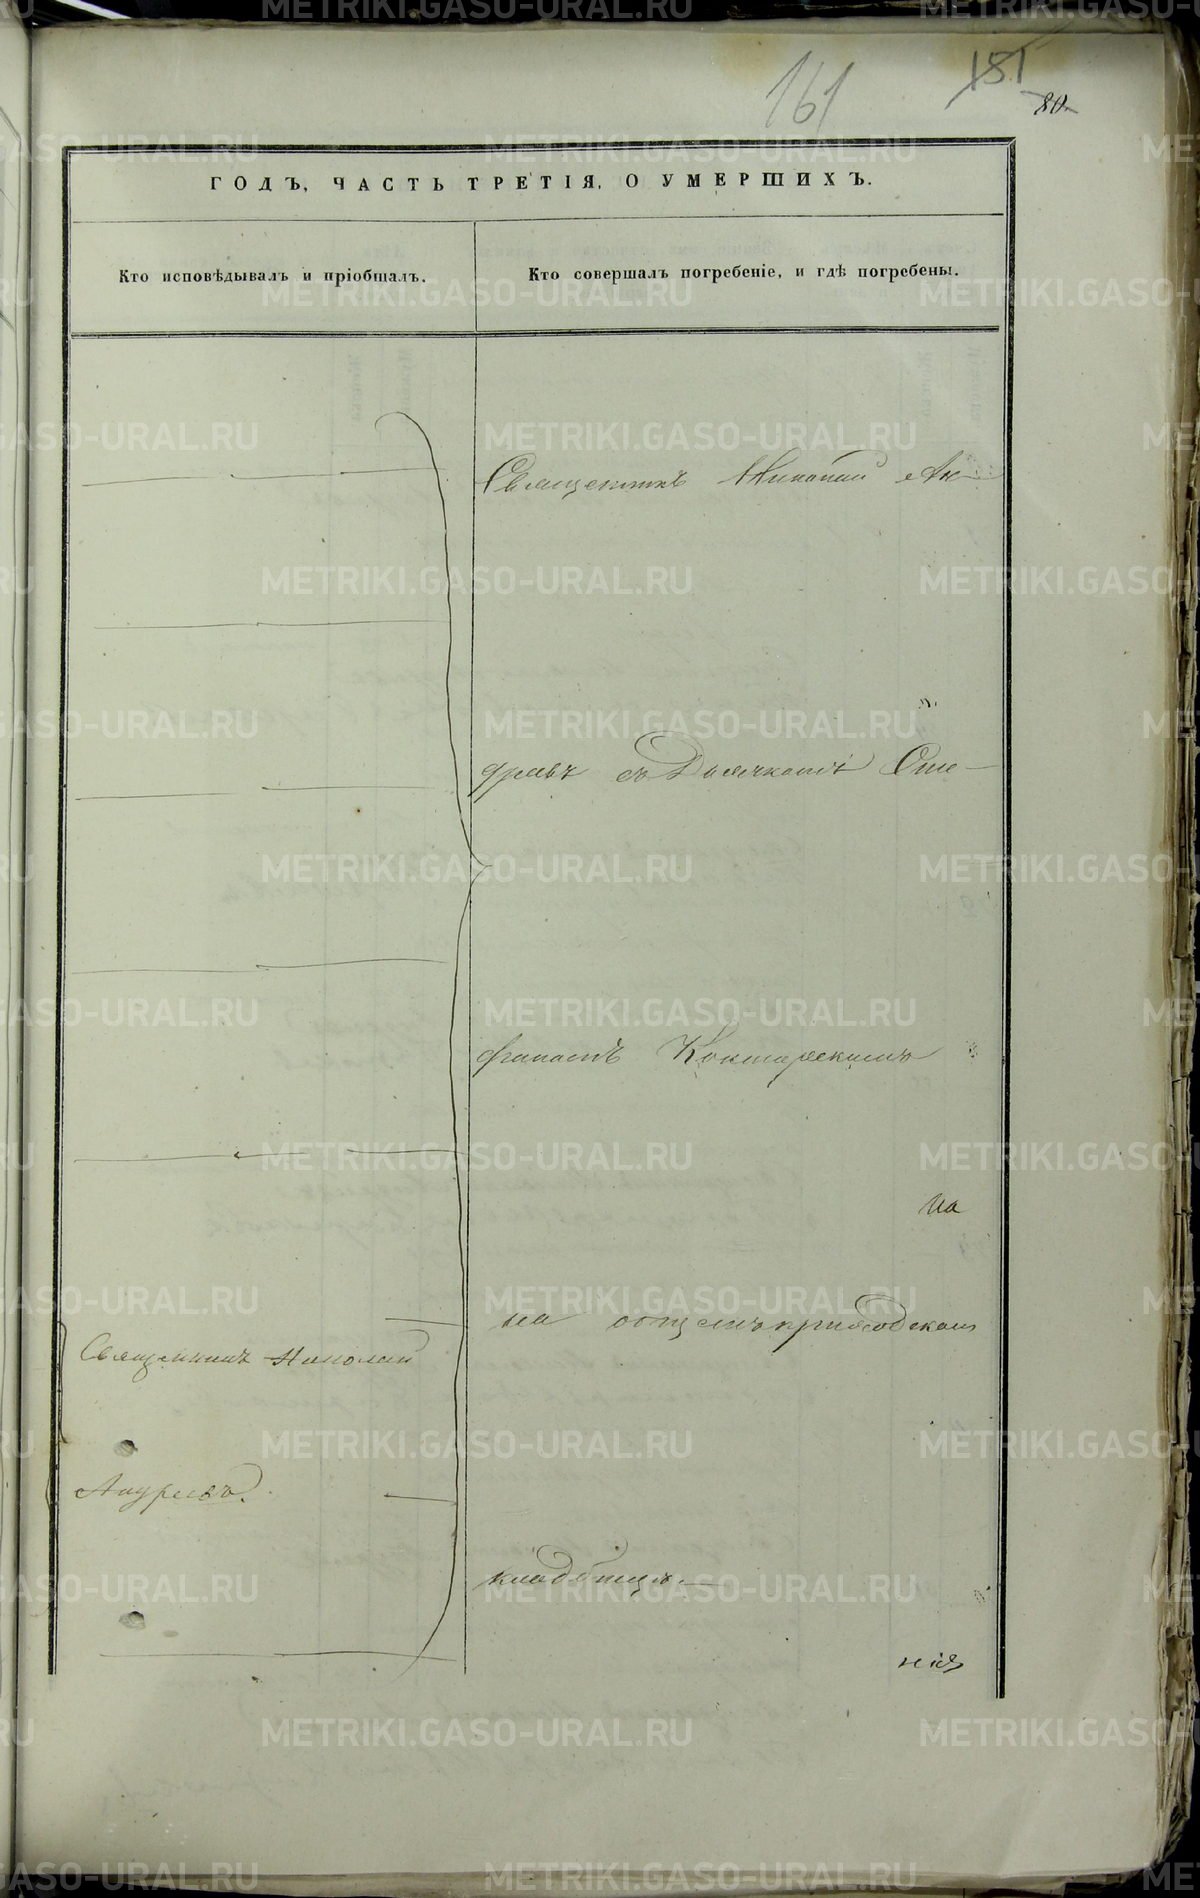 161
151
80.
ГОДЪ, ЧАСТЬ ТРЕТІЯ, О УМЕРШИХЪ.
Кто исповѣдывалъ и пріобщалъ.
Кто совершалъ погребеніе, и гдѣ погребены.
Священникъ Николай Ан-
дреевъ съ Дьячкомъ Сте-
фаномъ
на
на общемъ приходскомъ
Священникъ Николай
Андреевъ.
кладбищѣ.
METRIKI.GASO-URAL.RU